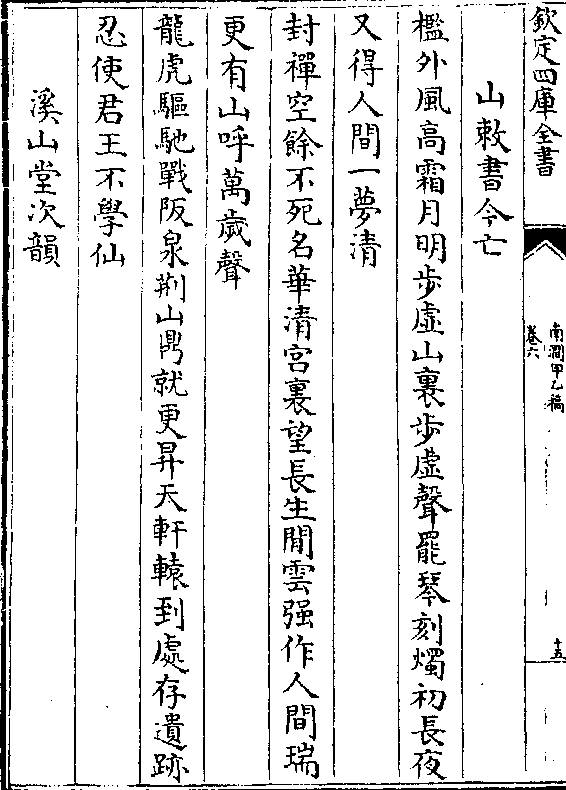 欽定四庫全書
南澗甲乙稿
卷六
十五
山敕書今亡
檻外風高霜月明步虛山裏步虛聲罷琴刻燭初長夜
又得人間一夢清
封禪空餘不死名華清宮裏望長生閒雲强作人間瑞
更有山呼萬歲聲
龍虎驅馳戰阪泉荆山鼎就更昇天軒轅到處存遺跡
忍使君王不學仙
溪山堂次韻